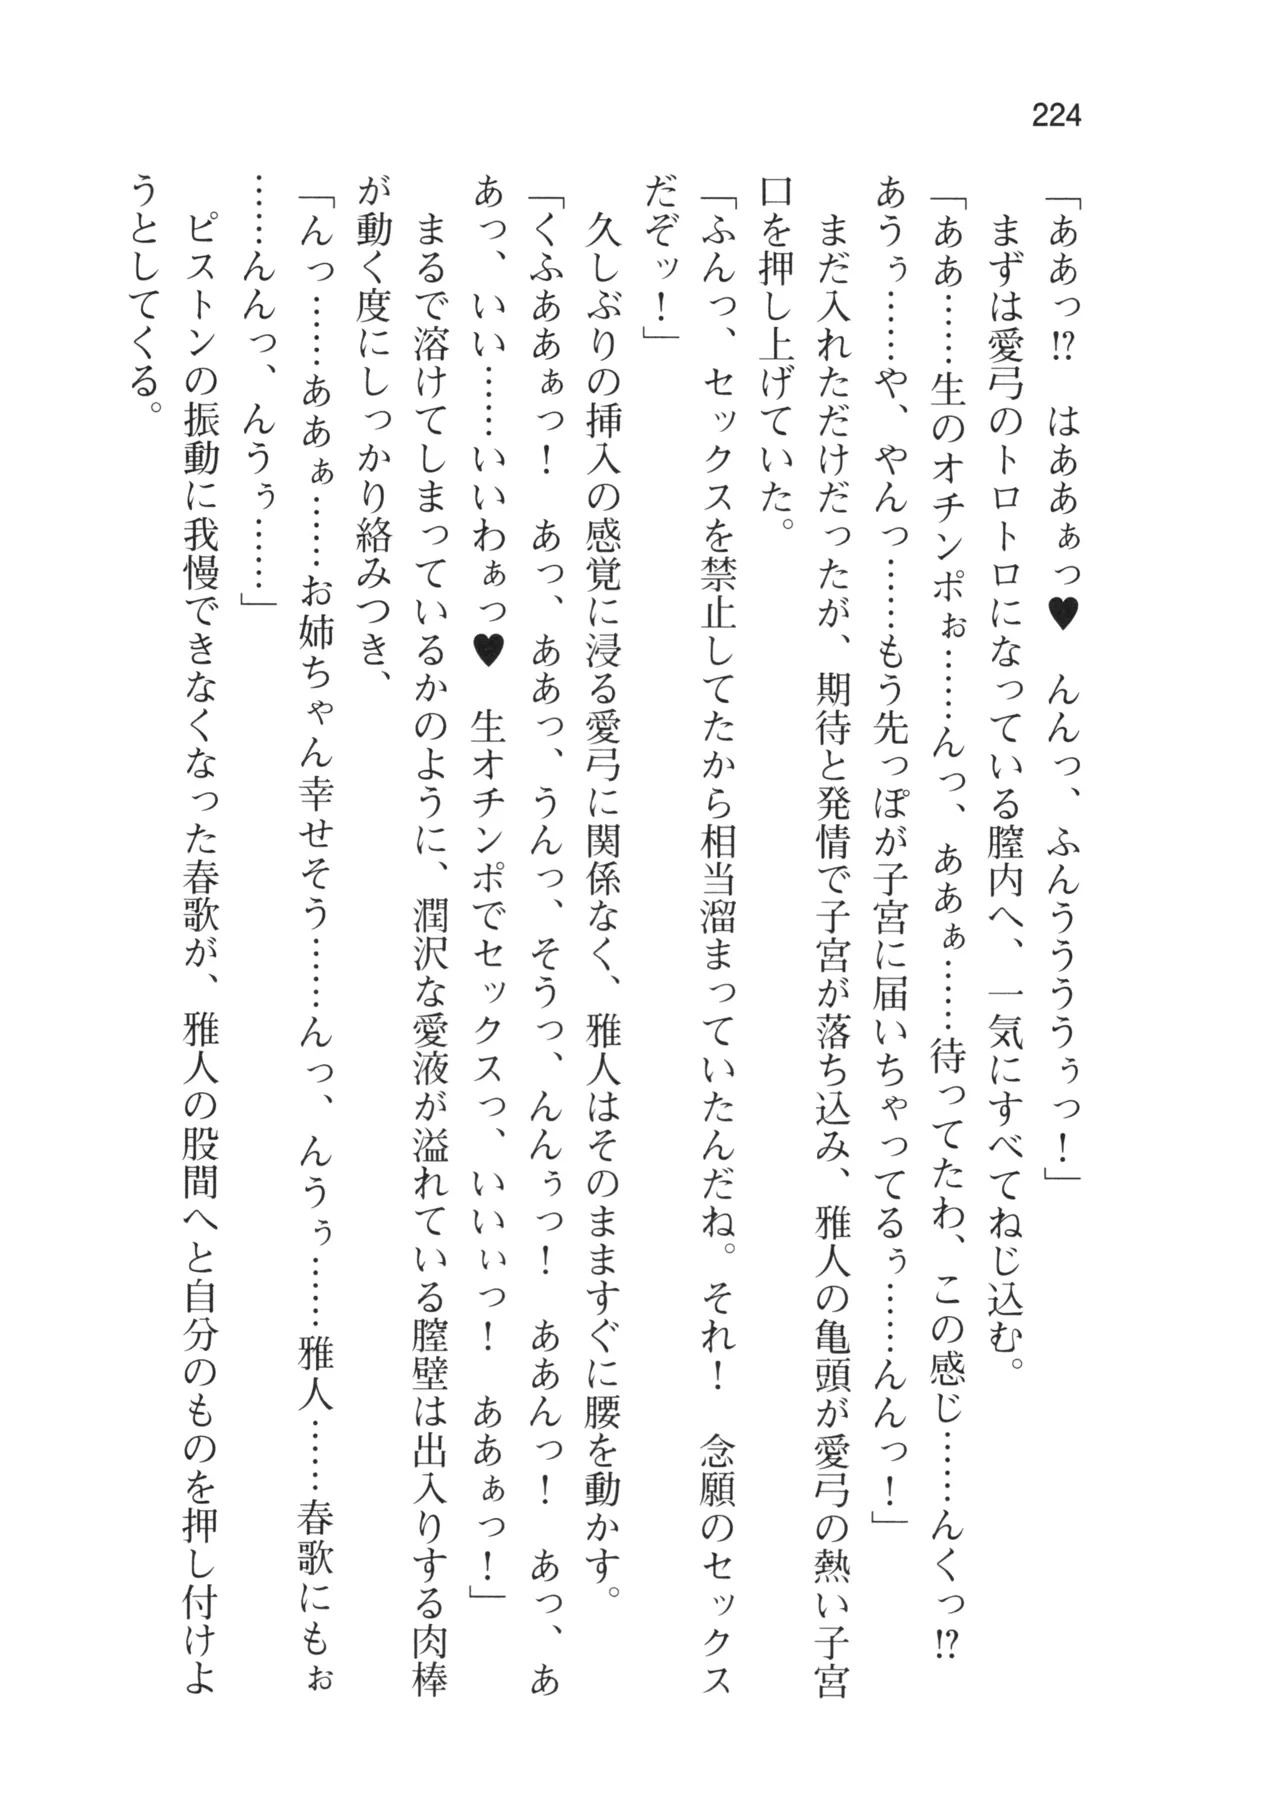 224
「ああっ!?　はあぁっ♥　んんっ、ふんううううぅっ！」
　まずは愛弓のトロトロになっている膣内へ、一気にすべてねじ込む。
「ああ……生のオチンポぉ……んっ、あぁぁ……待ってたわ、この感じ……んくっ!?
あうぅ……や、やんっ……もう先っぽが子宮に届いちゃってるぅ……んんっ！」
　まだ入れただけだったが、期待と発情で子宮が落ち込み、雅人の亀頭が愛弓の熱い子宮
口を押し上げていた。
「ふんっ、セックスを禁止してたから相当溜まっていたんだね。それ！　念願のセックス
だぞッ！」
　久しぶりの挿入の感覚に浸る愛弓に関係なく、雅人はそのまますぐに腰を動かす。
「くふああぁっ！　あっ、ああっ、うんっ、そうっ、んんぅっ！　ああんっ！　あっ、あ
あっ、いい……いいわぁっ♥　生オチンポでセックスっ、いいぃっ！　ああぁっ！」
　まるで溶けてしまっているかのように、潤沢な愛液が溢れている膣壁は出入りする肉棒
が動く度にしっかり絡みつき、
「んっ……ああぁ……お姉ちゃん幸せそう……んっ、んうぅ……雅人……春歌にもぉ
……んんっ、んうぅ……」
　ピストンの振動に我慢できなくなった春歌が、雅人の股間へと自分のものを押し付けよ
うとしてくる。